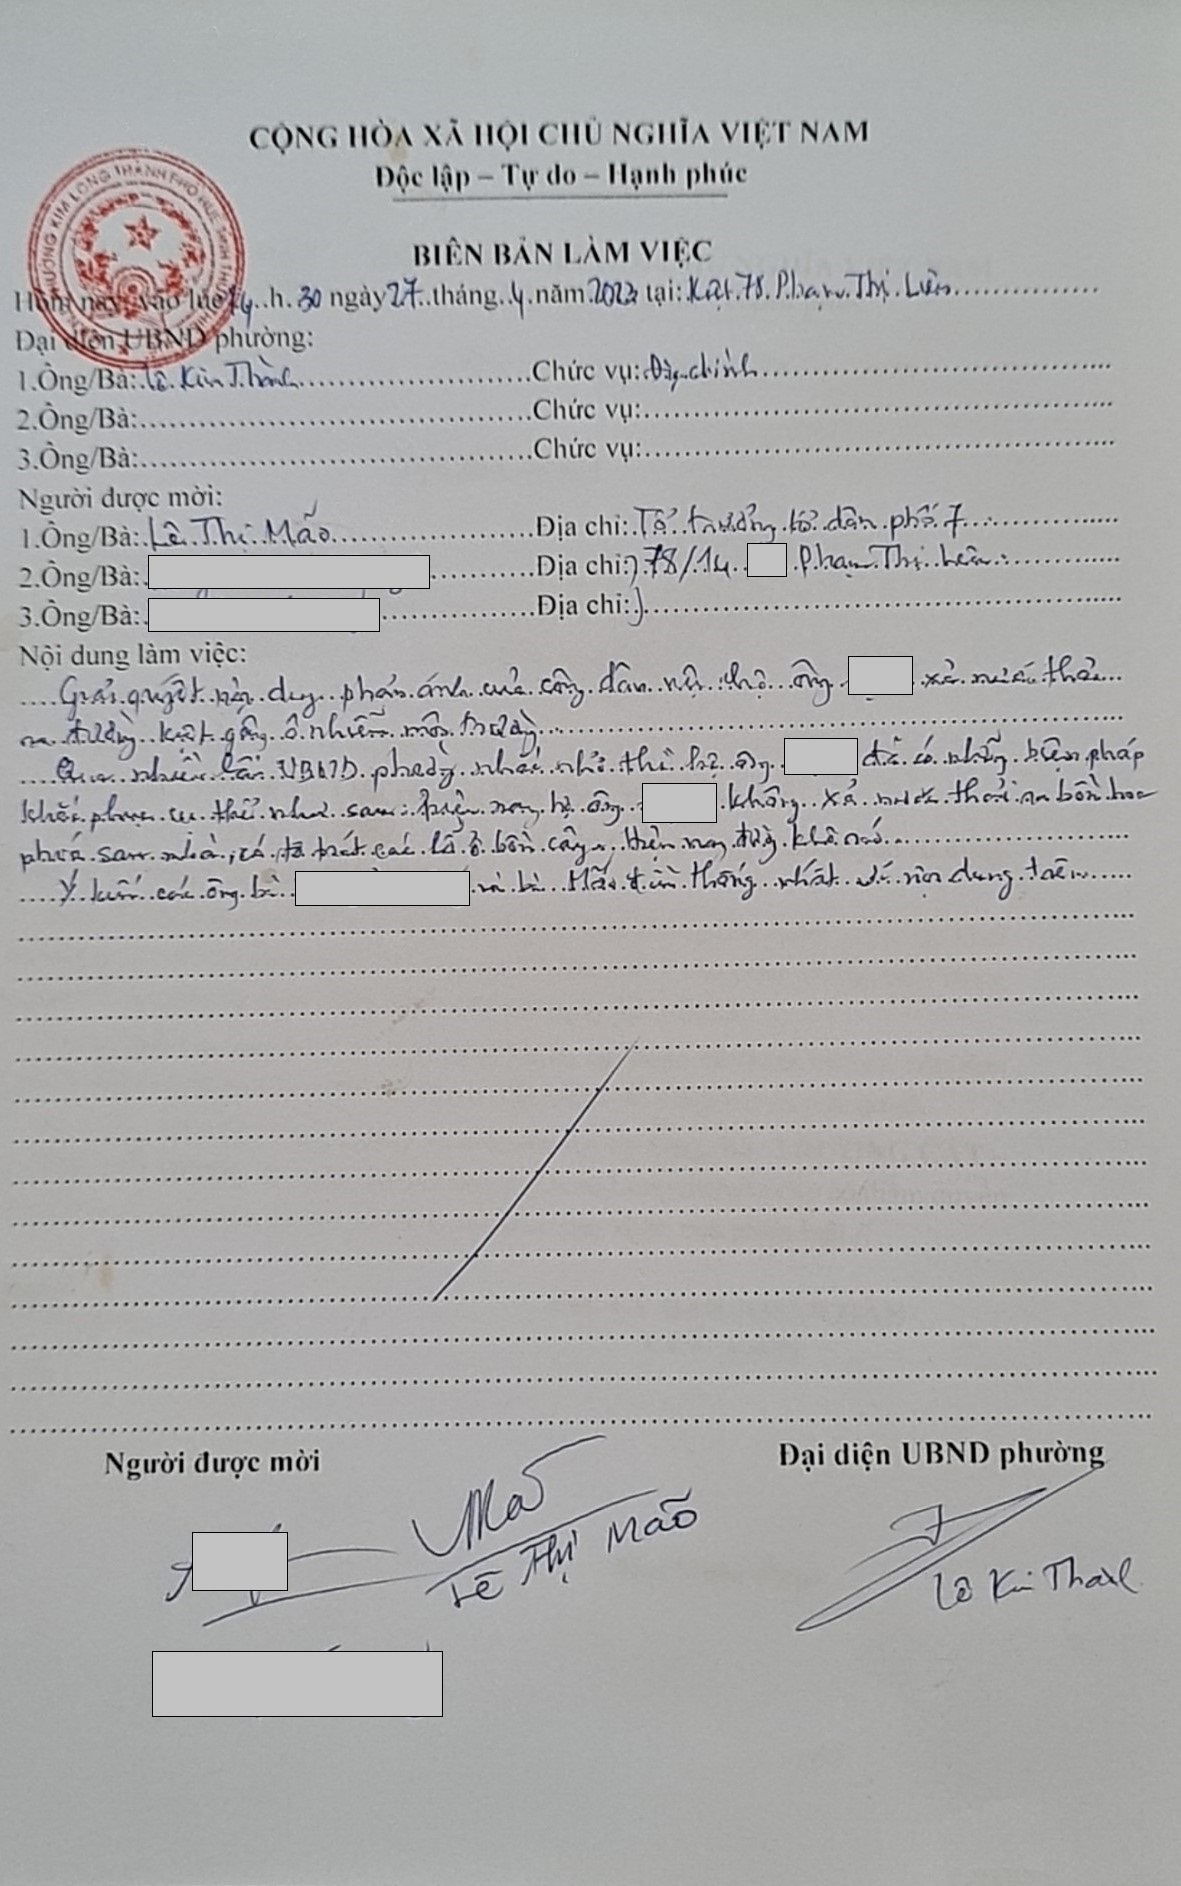 CỘNG HÒA XÃ HỘI CHỦ NGHĨA VIỆT NAM
Độc lập – Tự do – Hạnh phúc
BIÊN BẢN LÀM VIỆC
Hôm nay, vào lúc 14 h 30 ngày 27 tháng 4 năm 2023 tại: Kiệt 78 Phạm Thị Liên
Đại diện UBND phường:
1.Ông/Bà: Lê Kim Thành Chức vụ: Địa chính
2.Ông/Bà: Chức vụ:
3.Ông/Bà: Chức vụ:
Người được mời:
1.Ông/Bà: Lê Thị Mão Địa chỉ: Tổ trưởng tổ dân phố 7
2.Ông/Bà: Địa chỉ: 78/14 Phạm Thị Liên
3.Ông/Bà: Địa chỉ:
Nội dung làm việc:
Giải quyết nội dung phản ánh của công dân hộ ông xả nước thải
ra đường kiệt gây ô nhiễm môi trường
Qua nhiều lần UBND phường nhắc nhở thì hộ ông đã có những biện pháp
khắc phục cụ thể như sau: hiện nay hộ ông không xả nước thải ra bồn hoa
phía sau nhà, có tô trát các lỗ ở bồn cây, hiện nay đường khô ráo
Ý kiến các ông bà và bà Mão đều thống nhất với nội dung trên
Người được mời Đại diện UBND phường
Lê Thị Mão
Lê Kim Thành